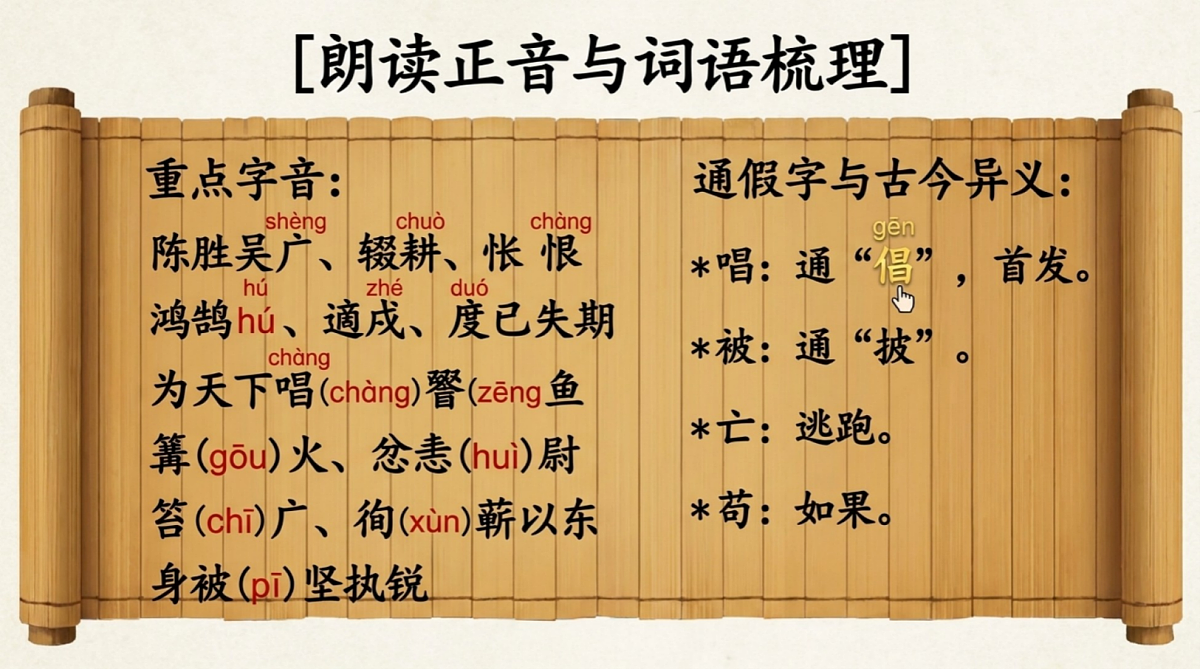 [朗读正音与词语梳理]
重点字音：
shèng chuò chàng
陈胜吴广、辍耕、怅 恨
hú zhé duó
鸿鹄hú、適戍、度已失期
chàng
为天下唱(chàng)罾(zēng鱼
篝(gōu)火、忿恚(huì)尉
笞(chī)广、徇(xùn)蕲以东
身被(pī)坚执锐
通假字与古今异义：
gēn
*唱：通“倡”，首发。
*被：通“披”。
*亡：逃跑。
*苟：如果。